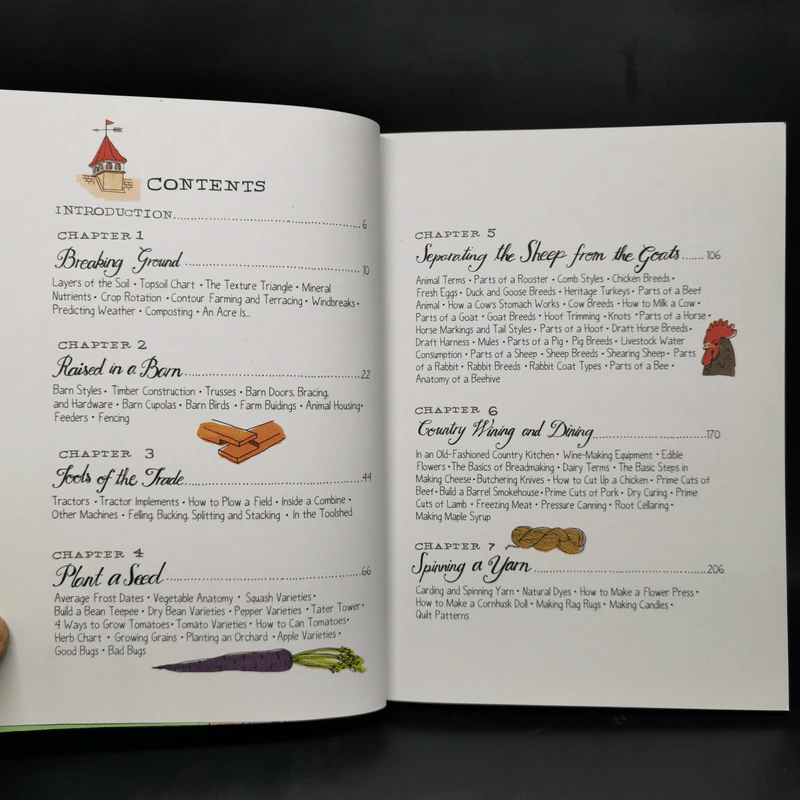 CONTENTS
INTRODUCTION 6
CHAPTER 1
Breaking Ground 10
Layers of the Soil • Topsoil Chart • The Texture Triangle • Mineral
Nutrients • Crop Rotation • Contour Farming and Terracing • Windbreaks •
Predicting Weather • Composting • An Acre Is...
CHAPTER 2
Raised in a Barn 22
Barn Styles • Timber Construction • Trusses • Barn Doors, Bracing,
and Hardware • Barn Cupolas • Barn Birds • Farm Buidings • Animal Housing •
Feeders • Fencing
CHAPTER 3
Tools of the Trade 44
Tractors • Tractor Implements • How to Plow a Field • Inside a Combine •
Other Machines • Felling, Bucking, Splitting and Stacking • In the Toolshed
CHAPTER 4
Plant a Seed 66
Average Frost Dates • Vegetable Anatomy • Squash Varieties •
Build a Bean Teepee • Dry Bean Varieties • Pepper Varieties • Tater Tower •
4 Ways to Grow Tomatoes • Tomato Varieties • How to Can Tomatoes •
Herb Chart • Growing Grains • Planting an Orchard • Apple Varieties •
Good Bugs • Bad Bugs
CHAPTER 5
Separating the Sheep from the Goats 106
Animal Terms • Parts of a Rooster • Comb Styles • Chicken Breeds •
Fresh Eggs • Duck and Goose Breeds • Heritage Turkeys • Parts of a Beef
Animal • How a Cow's Stomach Works • Cow Breeds • How to Milk a Cow •
Parts of a Goat • Goat Breeds • Hoof Trimming • Knots • Parts of a Horse •
Horse Markings and Tail Styles • Parts of a Hoof • Draft Horse Breeds •
Draft Harness • Mules • Parts of a Pig • Pig Breeds • Livestock Water
Consumption • Parts of a Sheep • Sheep Breeds • Shearing Sheep • Parts
of a Rabbit • Rabbit Breeds • Rabbit Coat Types • Parts of a Bee •
Anatomy of a Beehive
CHAPTER 6
Country Wining and Dining 170
In an Old-Fashioned Country Kitchen • Wine-Making Equipment • Edible
Flowers • The Basics of Breadmaking • Dairy Terms • The Basic Steps in
Making Cheese • Butchering Knives • How to Cut Up a Chicken • Prime Cuts of
Beef • Build a Barrel Smokehouse • Prime Cuts of Pork • Dry Curing • Prime
Cuts of Lamb • Freezing Meat • Pressure Canning • Root Cellaring •
Making Maple Syrup
CHAPTER 7
Spinning a Yarn 206
Carding and Spinning Yarn • Natural Dyes • How to Make a Flower Press •
How to Make a Cornhusk Doll • Making Rag Rugs • Making Candles •
Quilt Patterns